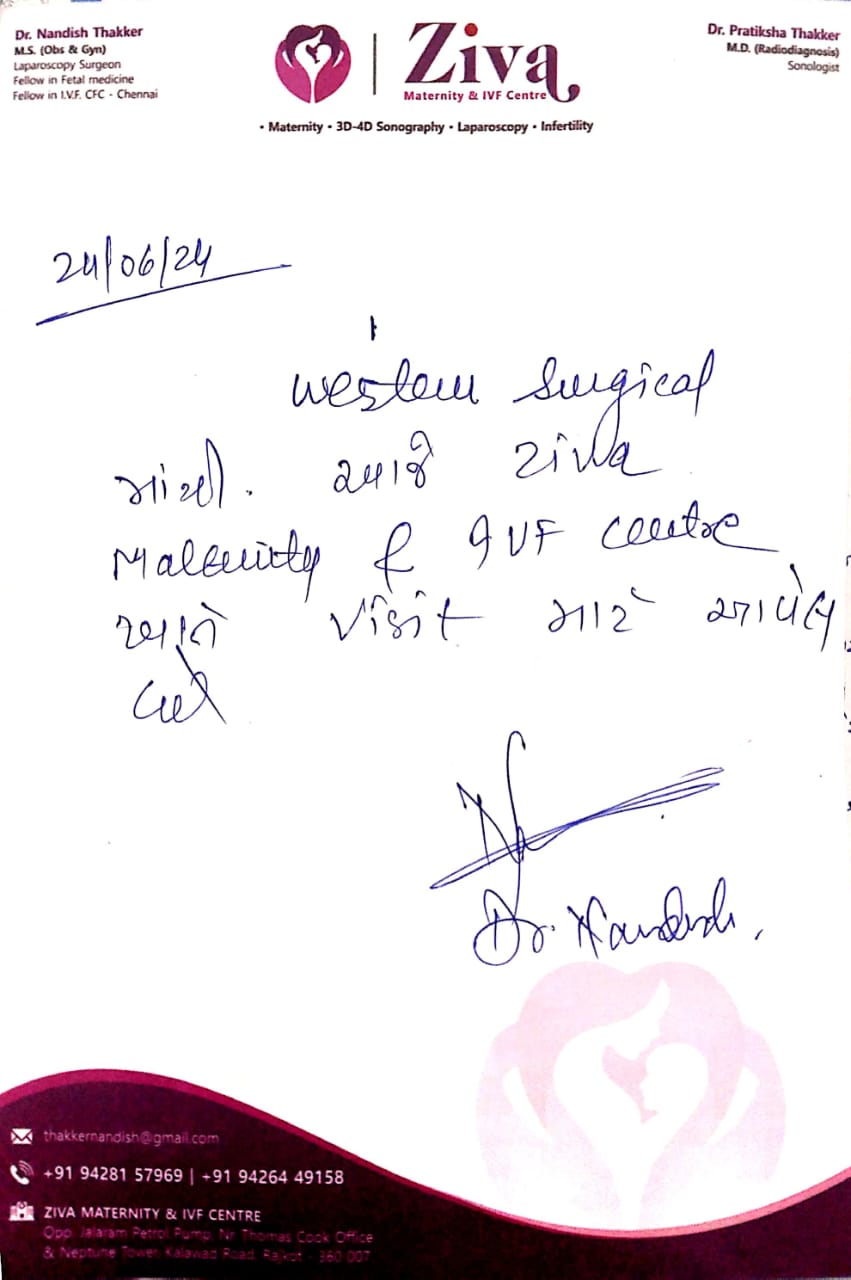 Dr. Nandish Thakker
M.S. (Obs & Gyn)
Laparoscopy Surgeon
Fellow in Fetal medicine
Fellow in I.V.F. CFC - Chennai
Ziva
Maternity & IVF Centre
• Maternity • 3D-4D Sonography • Laparoscopy • Infertility
Dr. Pratiksha Thakker
M.D. (Radiodiagnosis)
Sonologist
24/06/24
Western Surgical
માંથી. આજે Ziva
Maternity & IVF Centre
ખાતે visit માટે આવેલ
છે
Dr. Nandish.
thakkernandish@gmail.com
+91 94281 57969 | +91 94264 49158
ZIVA MATERNITY & IVF CENTRE
Opp. Jalaram Petrol Pump, Nr Thomas Cook Office
& Neptune Tower, Kalawad Road, Rajkot - 360 007